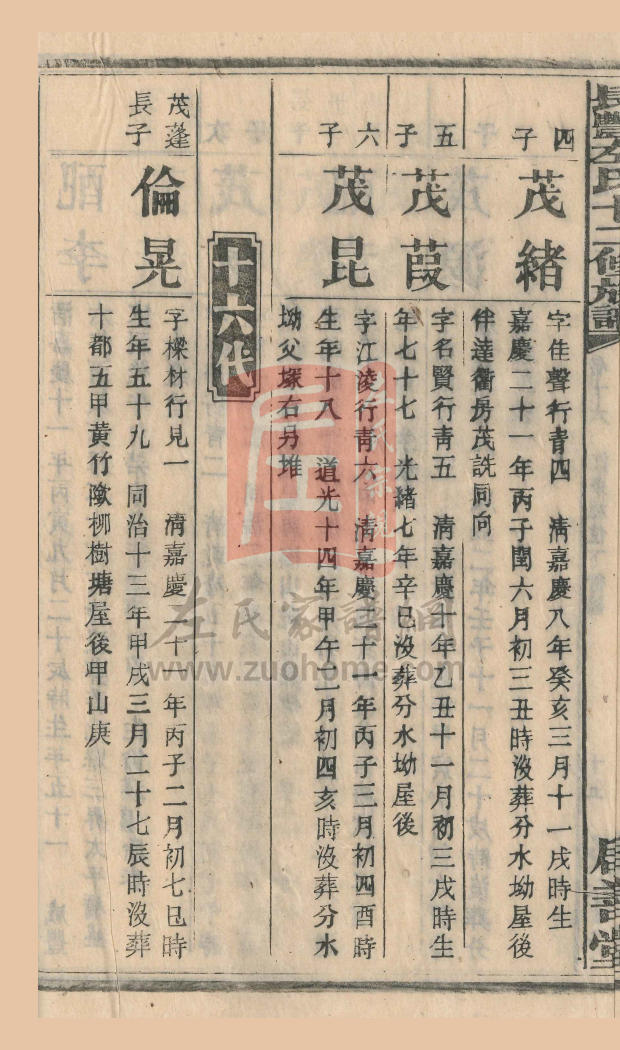 長豐左氏十二修族譜
四
子
茂緒
字佳聲行青四 清嘉慶八年癸亥三月十一戌時生
嘉慶二十一年丙子閏六月初三丑時沒葬分水坳屋後
伴達衢房茂詵同向
五
子
茂葭
字名賢行青五 清嘉慶十年乙丑十一月初三戌時生
年七十七 光緒七年辛巳沒葬分水坳屋後
六
子
茂昆
字江淩行青六 清嘉慶二十一年丙子三月初四酉時
生年十八 道光十四年甲午二月初四亥時沒葬分水
坳父塚右另堆
十六代
茂蓬
長子
倫晃
字樑材行見一 清嘉慶二十 年丙子二月初七巳時
生年五十九 同治十三年甲戌三月二十七辰時沒葬
十都五甲黃竹陰柳樹塘屋後甲山庚
左氏家譜網
www.zuohome.com